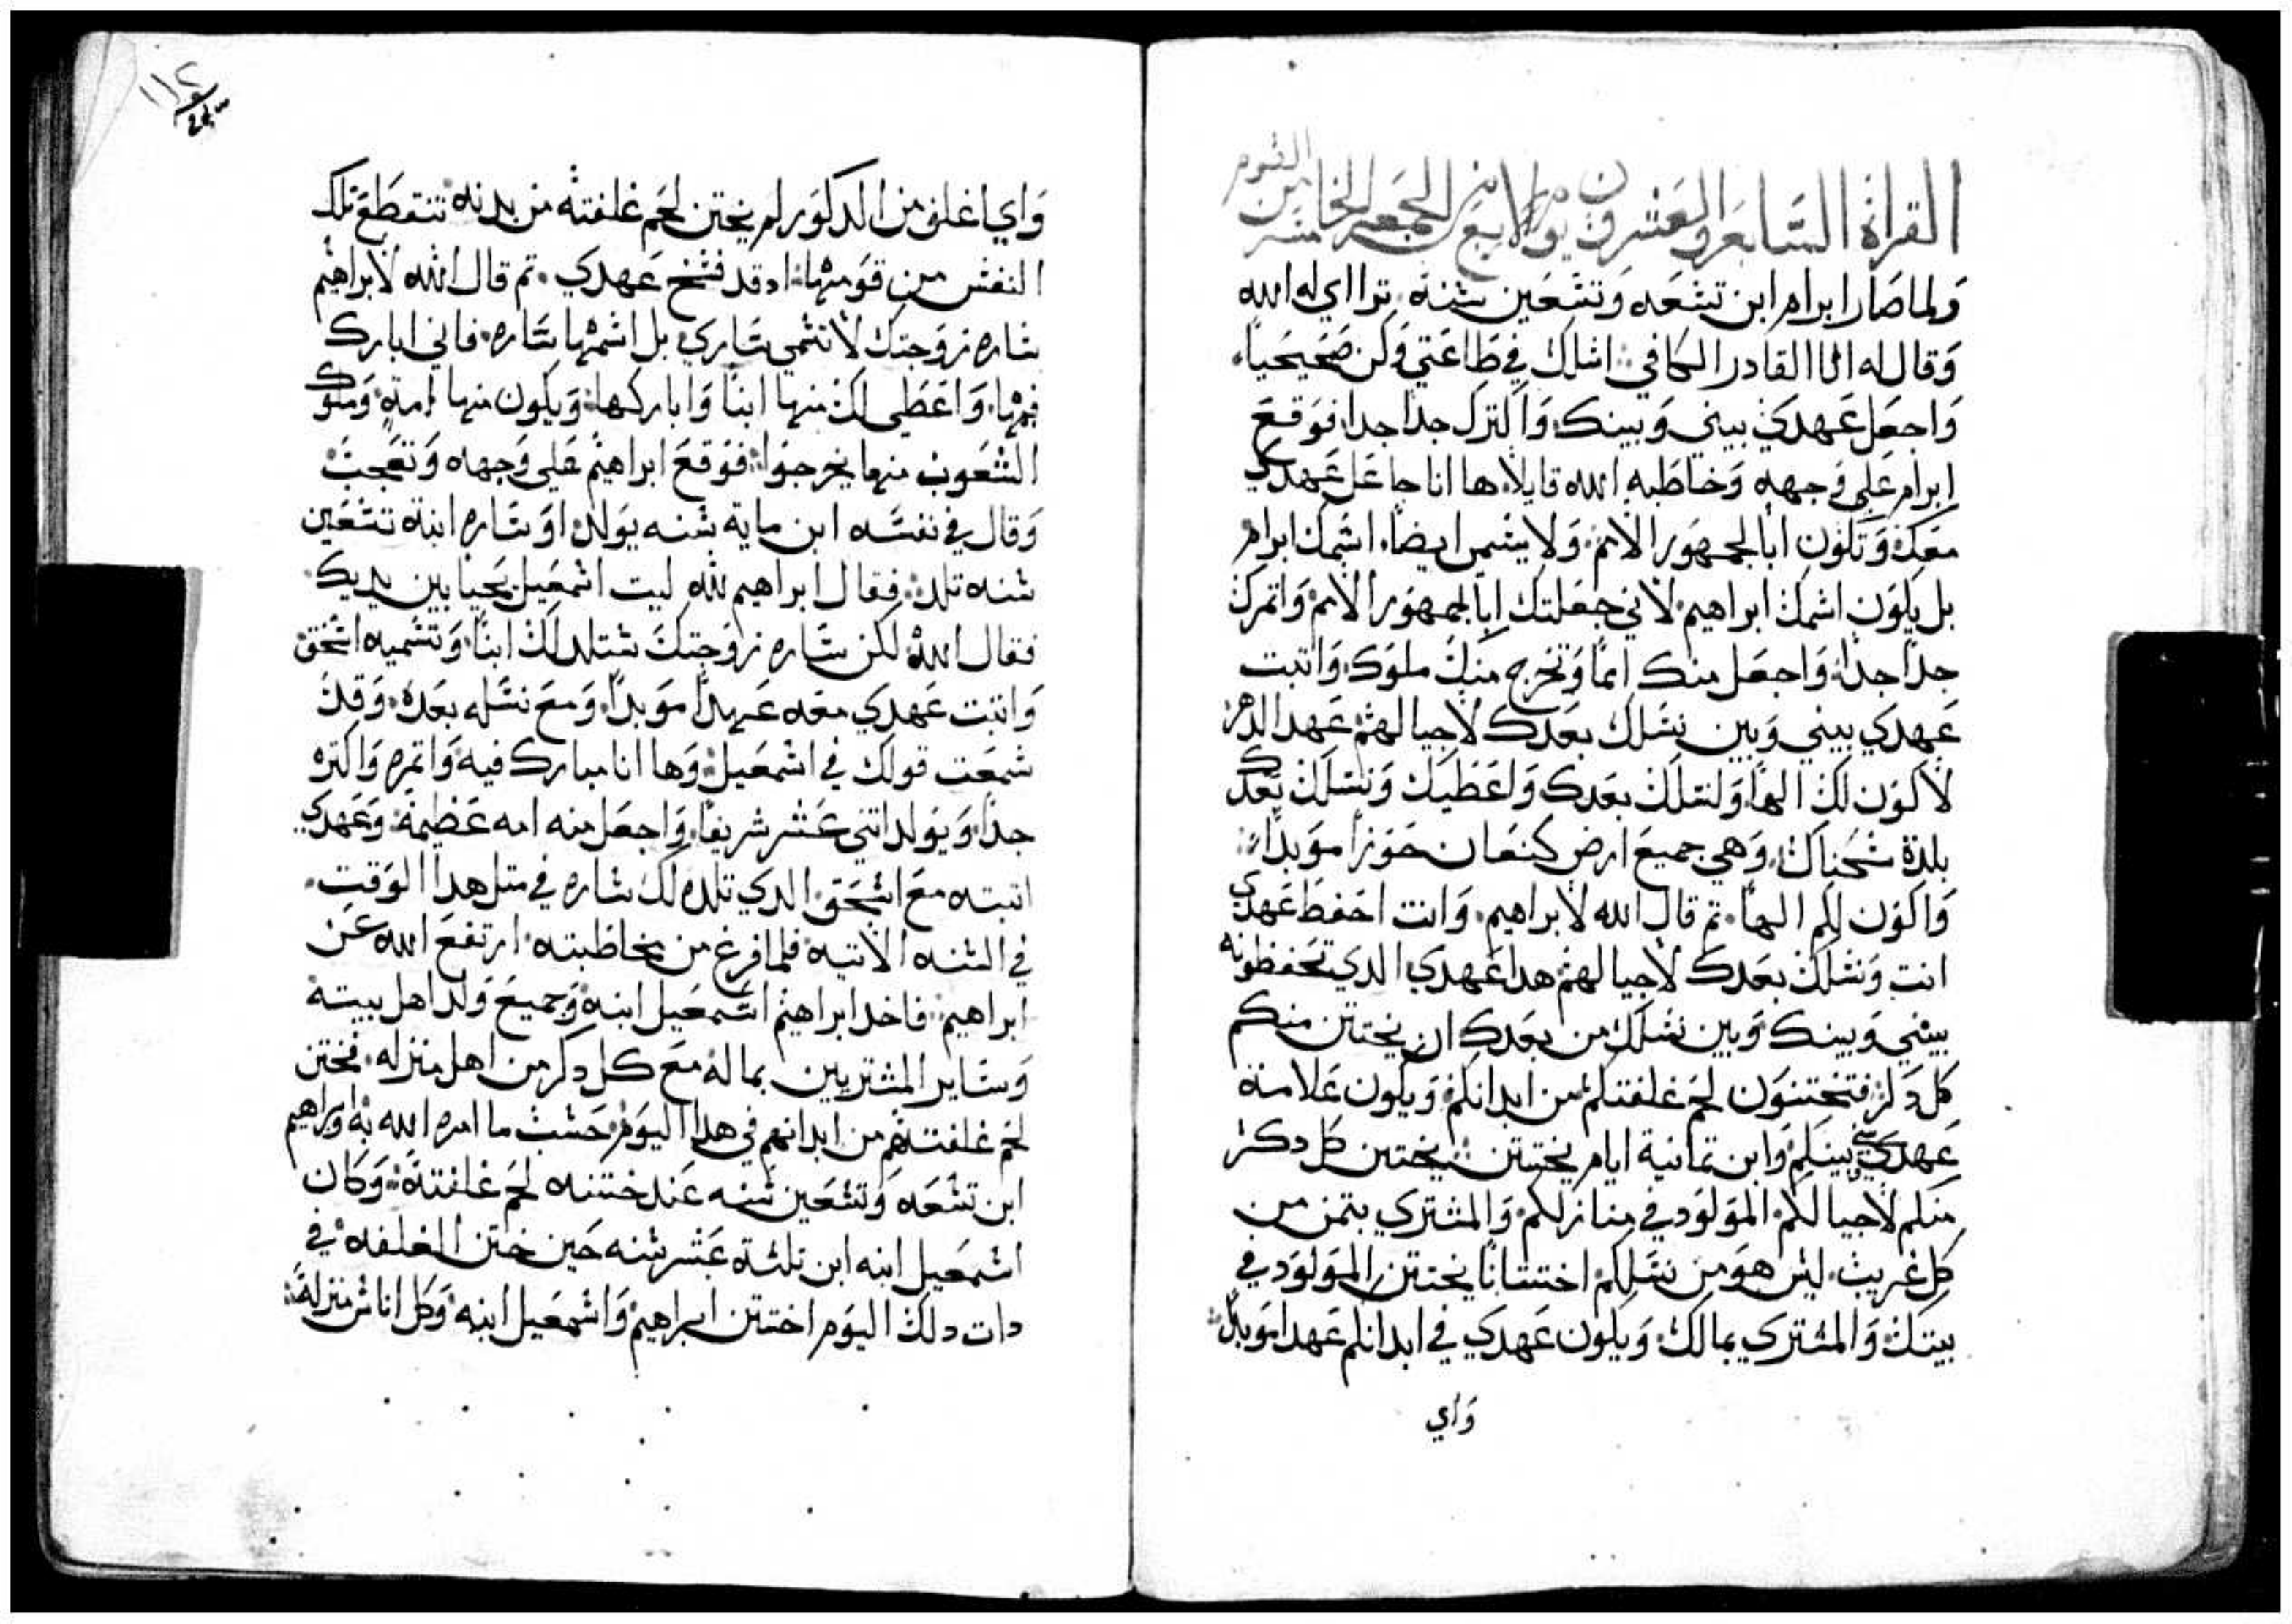 القراة السابعه والعشرون يوم الاربع من الجمعه الخامسه من الصوم
ولما صار ابرام ابن تسعه وتسعين سنة ترااي له الله
وقال له انا القادر الكافي اسلك في طاعتي وكن صحيحياً
واجعل عهدي بيني وبينك واكترك جدا جدا فوقع
ابرام على وجهه وخاطبه الله قايلا ها انا جاعل عهدي
معك وتكون ابا لجمهور الامم ولا يسمى ايضا اسمك ابرام
بل يكون اسمك ابراهيم لاني جعلتك ابا لجمهور الامم واتمرك
جداً جدا واجعل منك امما وتخرج منك ملوك واتبت
عهدي بيني وبين نسلك بعدك لاجيالهم عهد الدهر
لاكون لك الهاً ولنسلك بعدك واعطيك ونسلك بعدك
بلدة سكناك وهي جميع ارض كنعان حوزا موبداً
واكون لكم الهاً تم قال الله لابراهيم وانت احفط عهدي
انت ونسلك بعدك لاجيالهم هدا عهدي الدي تحفظونه
بيني وبينك وبين نسلك من بعدك ان يختتن منكم
كل دكر فتختتنون لحم غلفتكم من ابدانكم ويكون علامة
عهدي بيني وبينكم وابن تمانية ايام يختتن يختتن كل دكر
منكم لاجيالكم المولود في منازلكم والمشتري بتمن من
كل غريب ليس هو من نسلكم اختتانا يختتن المولود في
بيتك والمشتري بمالك ويكون عهدي في ابدانكم عهدا موبداً
واي
واي اغلف من الدكور لم يختتن لحم غلفته من بدنه تنقطع تلك
النفس من قومها اد قد فسخ عهدي تم قال الله لابراهيم
ساره زوجتك لا تسمي ساري بل اسمها ساره فاني ابارك
فيها واعطي لك منها ابنا واباركها ويكون منها امة وملوك
الشعوب منها يخرجوا فوقع ابراهيم على وجهه وتعجب
وقال في نفسه ابن ماية سنه يولد او ساره ابنة تسعين
سنه تلد فقال ابراهيم لله ليت اسمعيل يحيا بين يديك
فقال الله لكن ساره زوجتك ستلد لك ابنا وتسميه اسحق
واتبت عهدي معه عهداً موبداً ومع نسله بعده وقد
سمعت قولك في اسمعيل وها انا مبارك فيه واتمره واكتره
جدا ويولد اتني عشر شريفا واجعل منه امه عضيمة وعهدي
اتبته مع اسحق الدي تلده لك ساره في متل هدا الوقت
في السنه الاتيه فلما فرغ من مخاطبته ارتفع الله عن
ابراهيم فاخد ابراهيم اسمعيل ابنه وجميع ولد اهل بيته
وساير المشتريين بماله مع كل دكر من اهل منزله فختن
لحم غلفتهم من ابدانهم في هدا اليوم حسب ما امره الله به وابراهيم
ابن تسعه وتسعين سنه عند ختنه لحم غلفته وكان
اسمعيل ابنه ابن تلتة عشر سنه حين ختن الغلفه في
دات دلك اليوم اختتن ابراهيم واسمعيل ابنه وكل اناس منزله